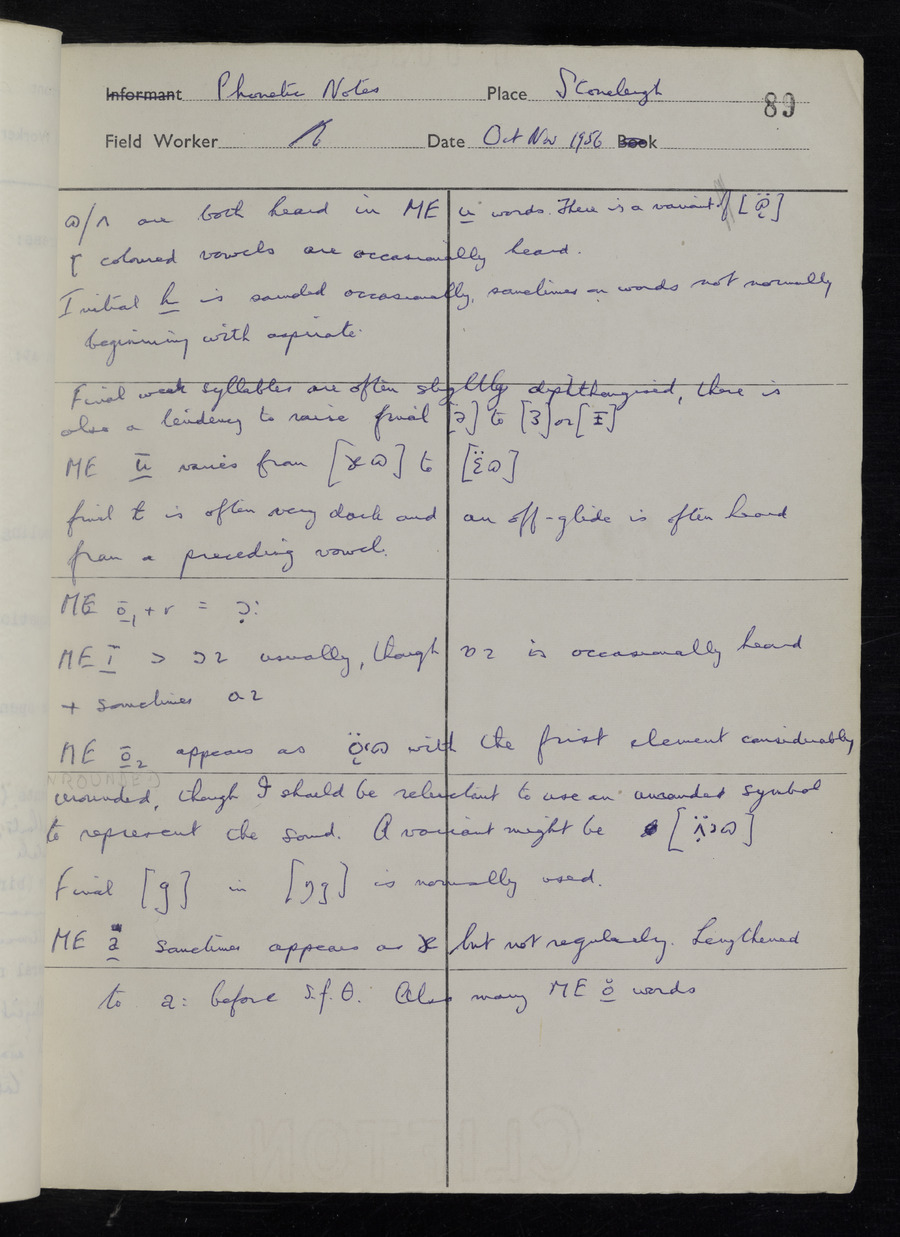 Informant Phonetic Notes Place Stoneleigh 89
Field Worker Date Oct Nov 1956 Book
ɷ/ʌ are both heard in ME u words. There is a variant of [ɷ̣̈]
r coloured vowels are occasionally heard.
Initial h is sounded occasionally, sometimes in words not normally
beginning with aspirate.
Final weak syllables are often slightly diphthongised, there is
also a tendency to raise final [ə] to [ɜ] or [ɪ̵]
ME ū varies from [ɤɷ] to [ɛ̣̈ɷ]
final ɫ is often very dark and an off-glide is often heard
from a preceding vowel.
ME ō₁ + r = ɔ̣:
ME ī > ɔɪ usually, though ɒɪ is occasionally heard
+ sometimes ɑɪ
ME ō₂ appears as ɷ with the first element considerably
UNROUNDED
unrounded, though I should be reluctant to use an unrounded symbol
to represent the sound. A variant might be
Final [g] in [ŋg] is normally used.
ME ă sometimes appears as but not regularly. Lengthened
to a: before s.f.θ. Also many ME ŏ words
CLIFTON